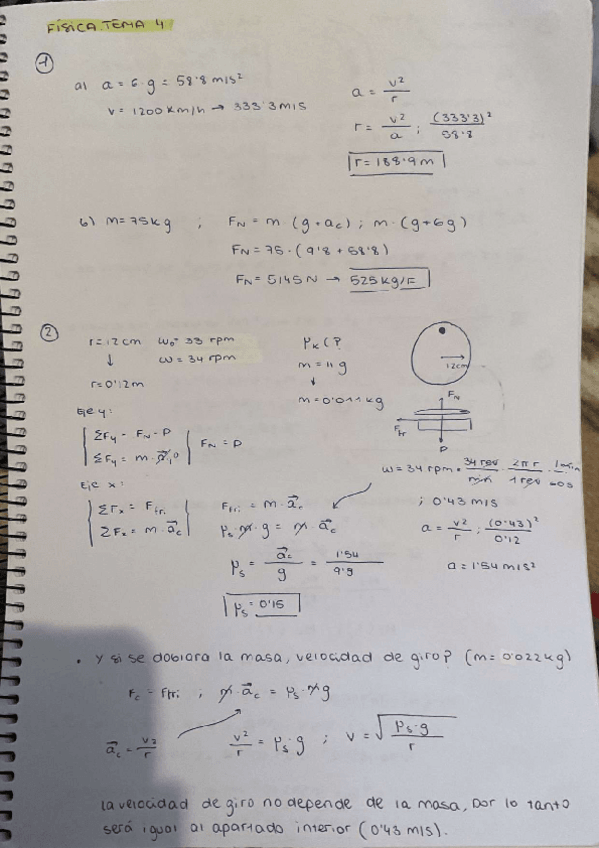 FÍSICA.TEMA 4
1
a) a = 6·g = 58'8 m/s²
v = 1200 km/h → 333'3 m/s
a = v²/r
r = v²/a ; (333'3)²/58'8
r = 188'9 m
b) m = 75kg ; FN = m·(g+ac) ; m·(g+6g)
FN = 75·(9'8 + 58'8)
FN = 5145N → 525 kg/F
2
r = 12cm ω₀ = 33 rpm
↓ ω = 34 rpm
r = 0'12m
μk ¿?
m = 11g
↓
m = 0'011kg
12cm
FN
Ffr
P
Eje y:
ΣFy = FN - P
ΣFy = m·a⁰
FN = P
ω = 34 rpm · 34 rev/min · 2πr/1rev · 1min/60s
; 0'43 m/s
Eje x:
Σrx = Ffr.
ΣFx = m·a⃗c
Ffri = m·a⃗c
μs·m·g = m·a⃗c
a = v²/r ; (0'43)²/0'12
a = 1'54 m/s²
μs = a⃗c/g = 1'54/9'8
μs = 0'15
• Y si se doblara la masa, velocidad de giro? (m = 0'022kg)
Fc = Ffri ; m·a⃗c = μs·m·g
a⃗c = v²/r
v²/r = μs·g ; v = √(μs·g/r)
la velocidad de giro no depende de la masa, por lo tanto
será igual al apartado interior (0'43 m/s).